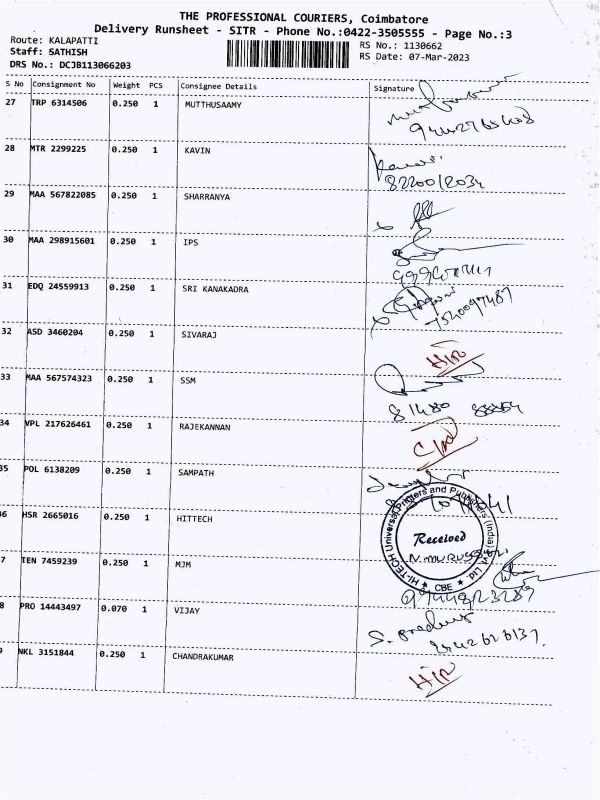 THE PROFESSIONAL COURIERS, Coimbatore
Delivery Runsheet - SITR - Phone No.:0422-3505555 - Page No.:3
Route: KALAPATTI
Staff: SATHISH
DRS No.: DCJB113066203
RS No.: 1130662
RS Date: 07-Mar-2023
S No Consignment No Weight PCS Consignee Details Signature
27 TRP 6314506 0.250 1 MUTTHUSAAMY
28 MTR 2299225 0.250 1 KAVIN
29 MAA 567822085 0.250 1 SHARRANYA
30 MAA 298915601 0.250 1 IPS
31 EDQ 24559913 0.250 1 SRI KANAKADRA
32 ASD 3460204 0.250 1 SIVARAJ
33 MAA 567574323 0.250 1 SSM
34 VPL 217626461 0.250 1 RAJEKANNAN
35 POL 6138209 0.250 1 SAMPATH
36 HSR 2665016 0.250 1 HITTECH
HI-TECH Universal Printers and Publishers (India) Pvt. Ltd.
Received
CBE
7 TEN 7459239 0.250 1 MJM
8 PRO 14443497 0.070 1 VIJAY
9 NKL 3151844 0.250 1 CHANDRAKUMAR